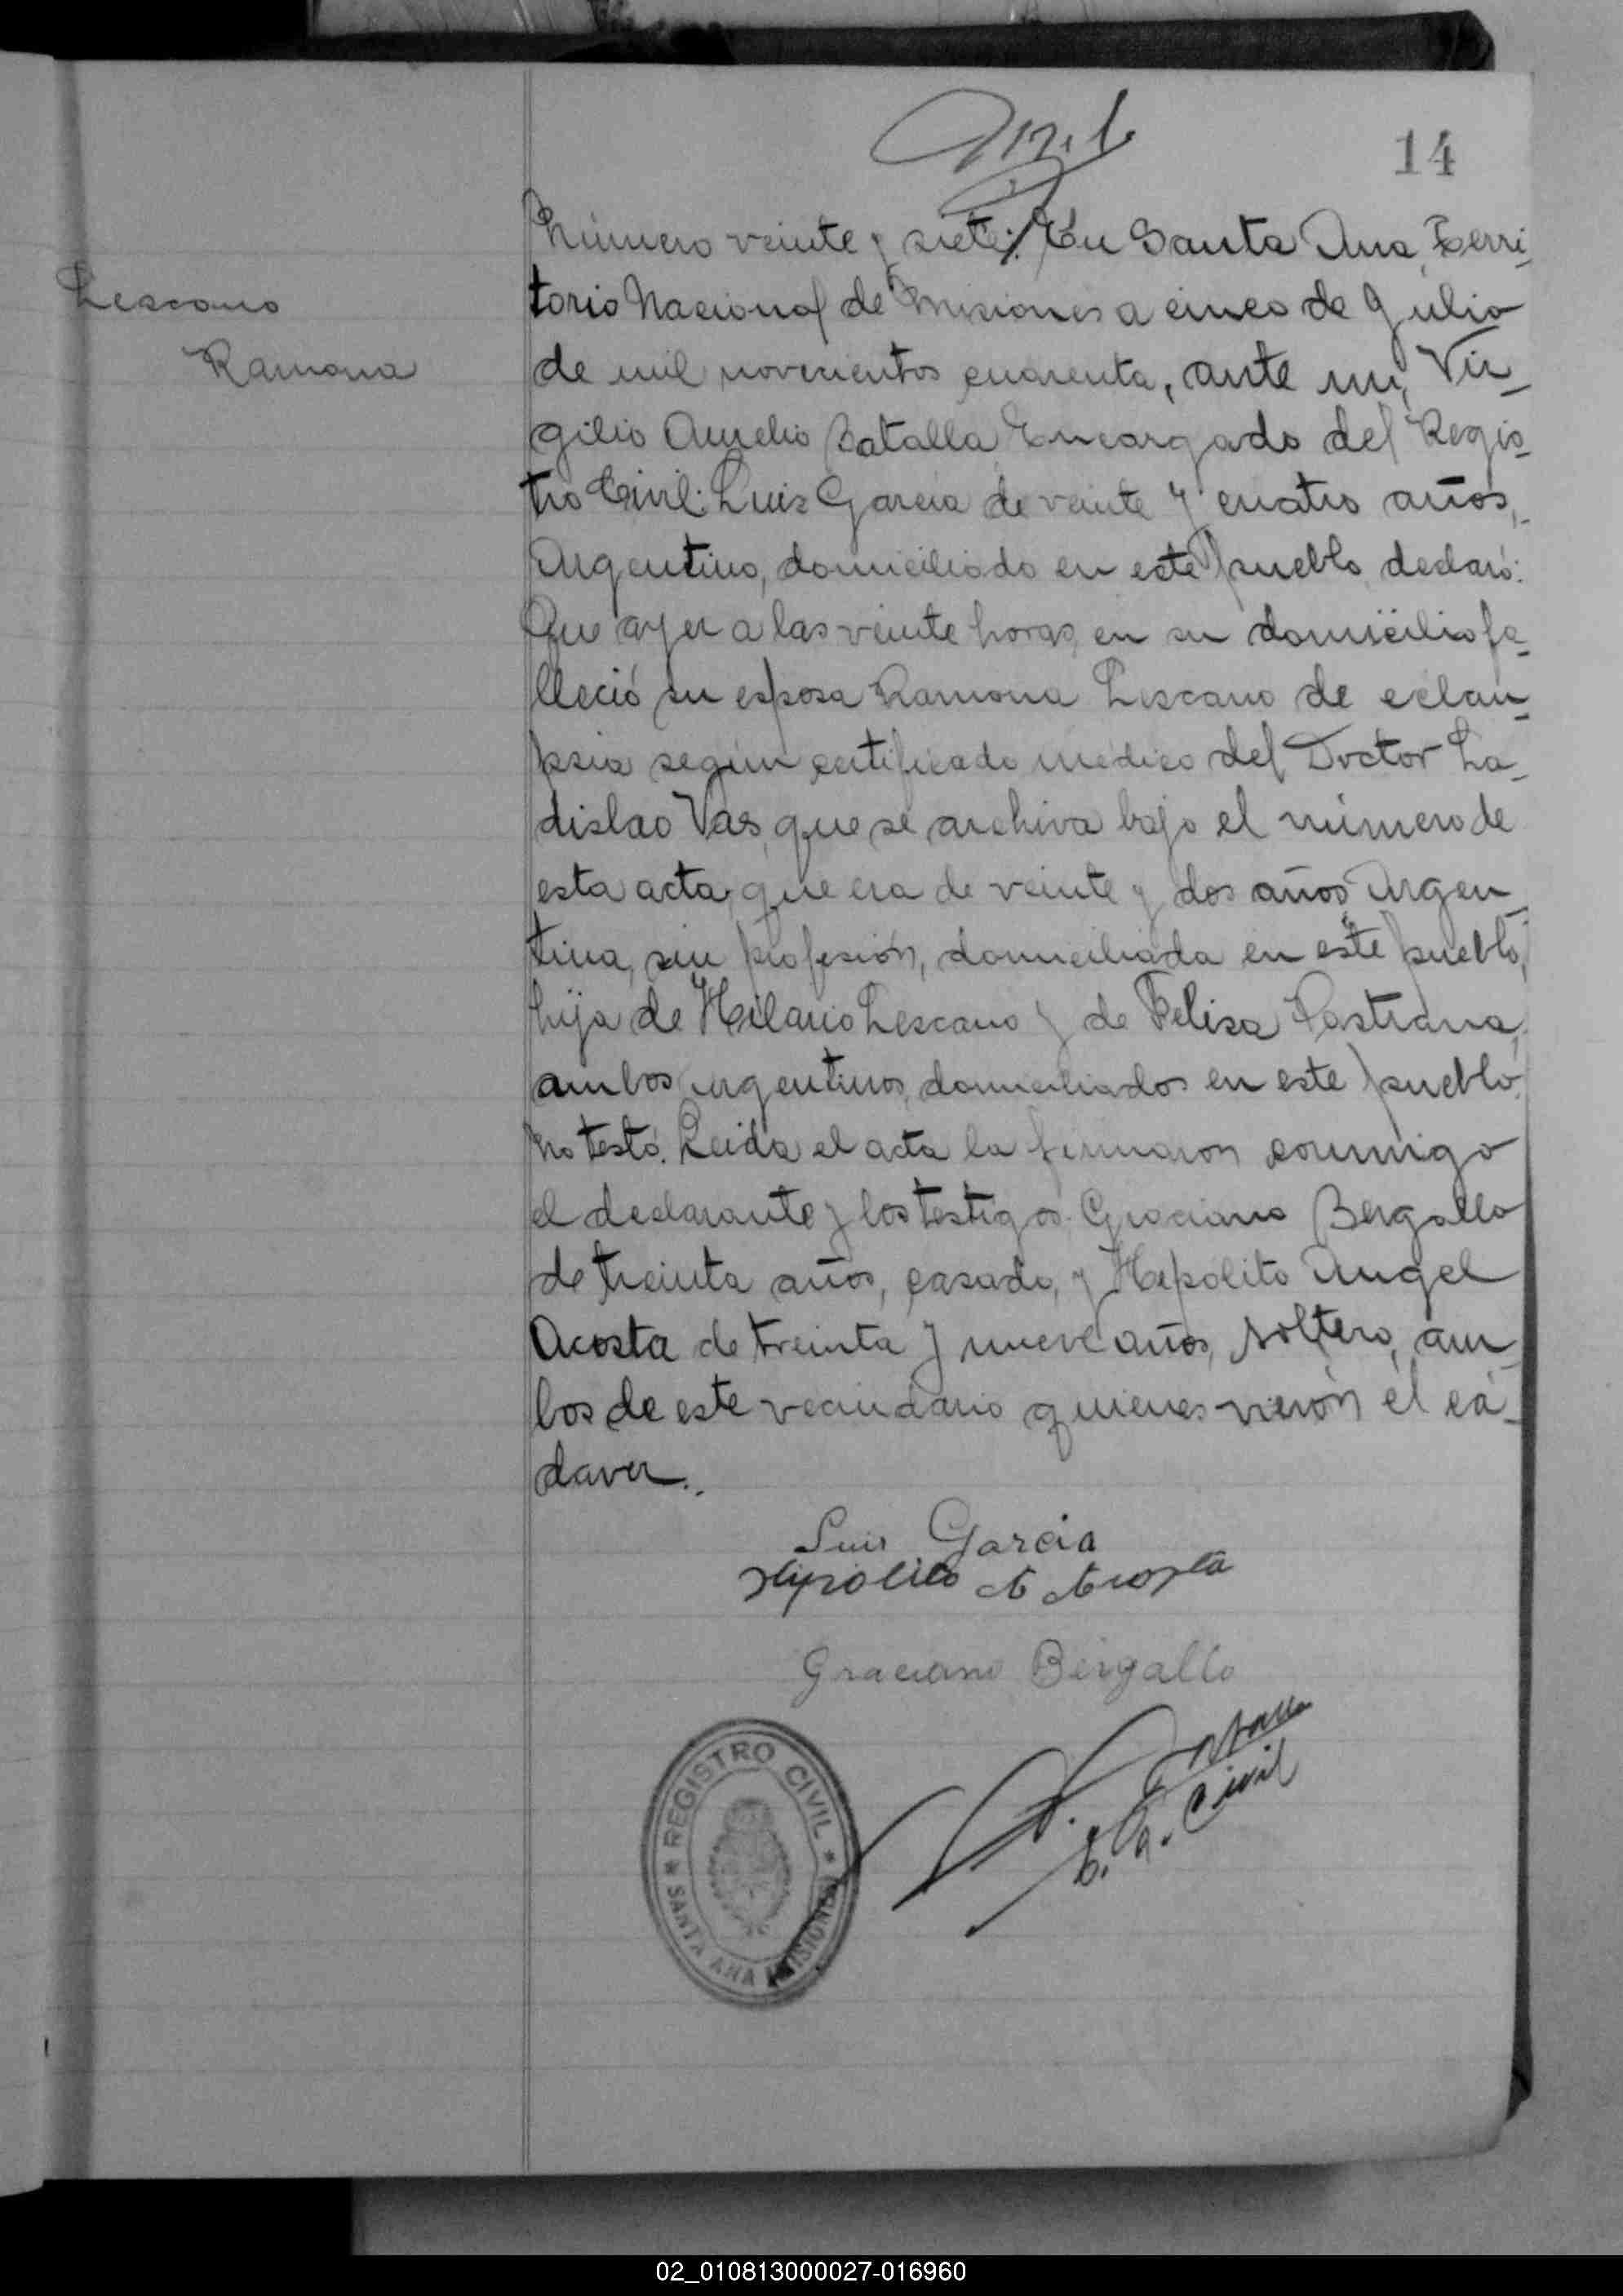 14
Lescano
Ramona
Número veinte y siete: En Santa Ana, Terri-
torio Nacional de Misiones a cinco de Julio
de mil novecientos cuarenta, ante mi, Vir-
gilio Aurelio Batalla Encargado del Regis-
tro Civil: Luis Garcia de veinte y cuatro años,
Argentino, domiciliado en este pueblo declaró:
Que ayer a las veinte horas, en su domicilio fa-
lleció su esposa Ramona Lescano de eclan-
psia según certificado médico del Doctor La-
dislao Vas, que se archiva bajo el número de
esta acta; que era de veinte y dos años Argen-
tina, sin profesión, domiciliada en este pueblo,
hija de Hilario Lescano y de Felisa Pastrana,
ambos argentinos, domiciliados en este pueblo.
No testó. Leida el acta la firmaron conmigo
el declarante y los testigos: Graciano Bergallo
de treinta años, casado, y Hipolito Angel
Acosta de treinta y nueve años, soltero, am-
bos de este vecindario quienes vieron el cá-
daver..
Luis Garcia
Hipolito A Acosta
Graciano Bergallo
Batalla
E. R. Civil
REGISTRO CIVIL
SANTA ANA MISIONES
02_010813000027-016960